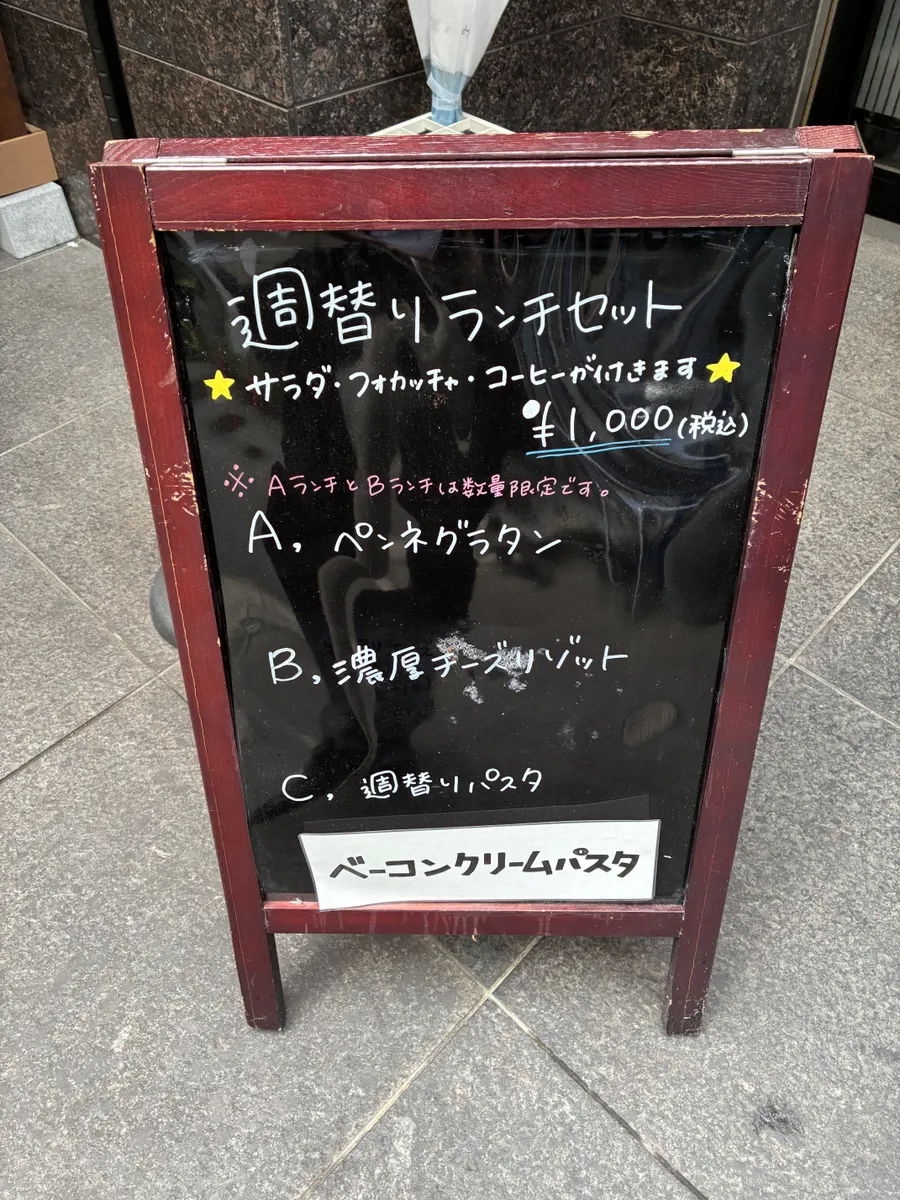 週替りランチセット
★サラダ・フォカッチャ・コーヒーが付きます★
¥1,000(税込)
※AランチとBランチは数量限定です。
A, ペンネグラタン
B, 濃厚チーズリゾット
C, 週替りパスタ
ベーコンクリームパスタ